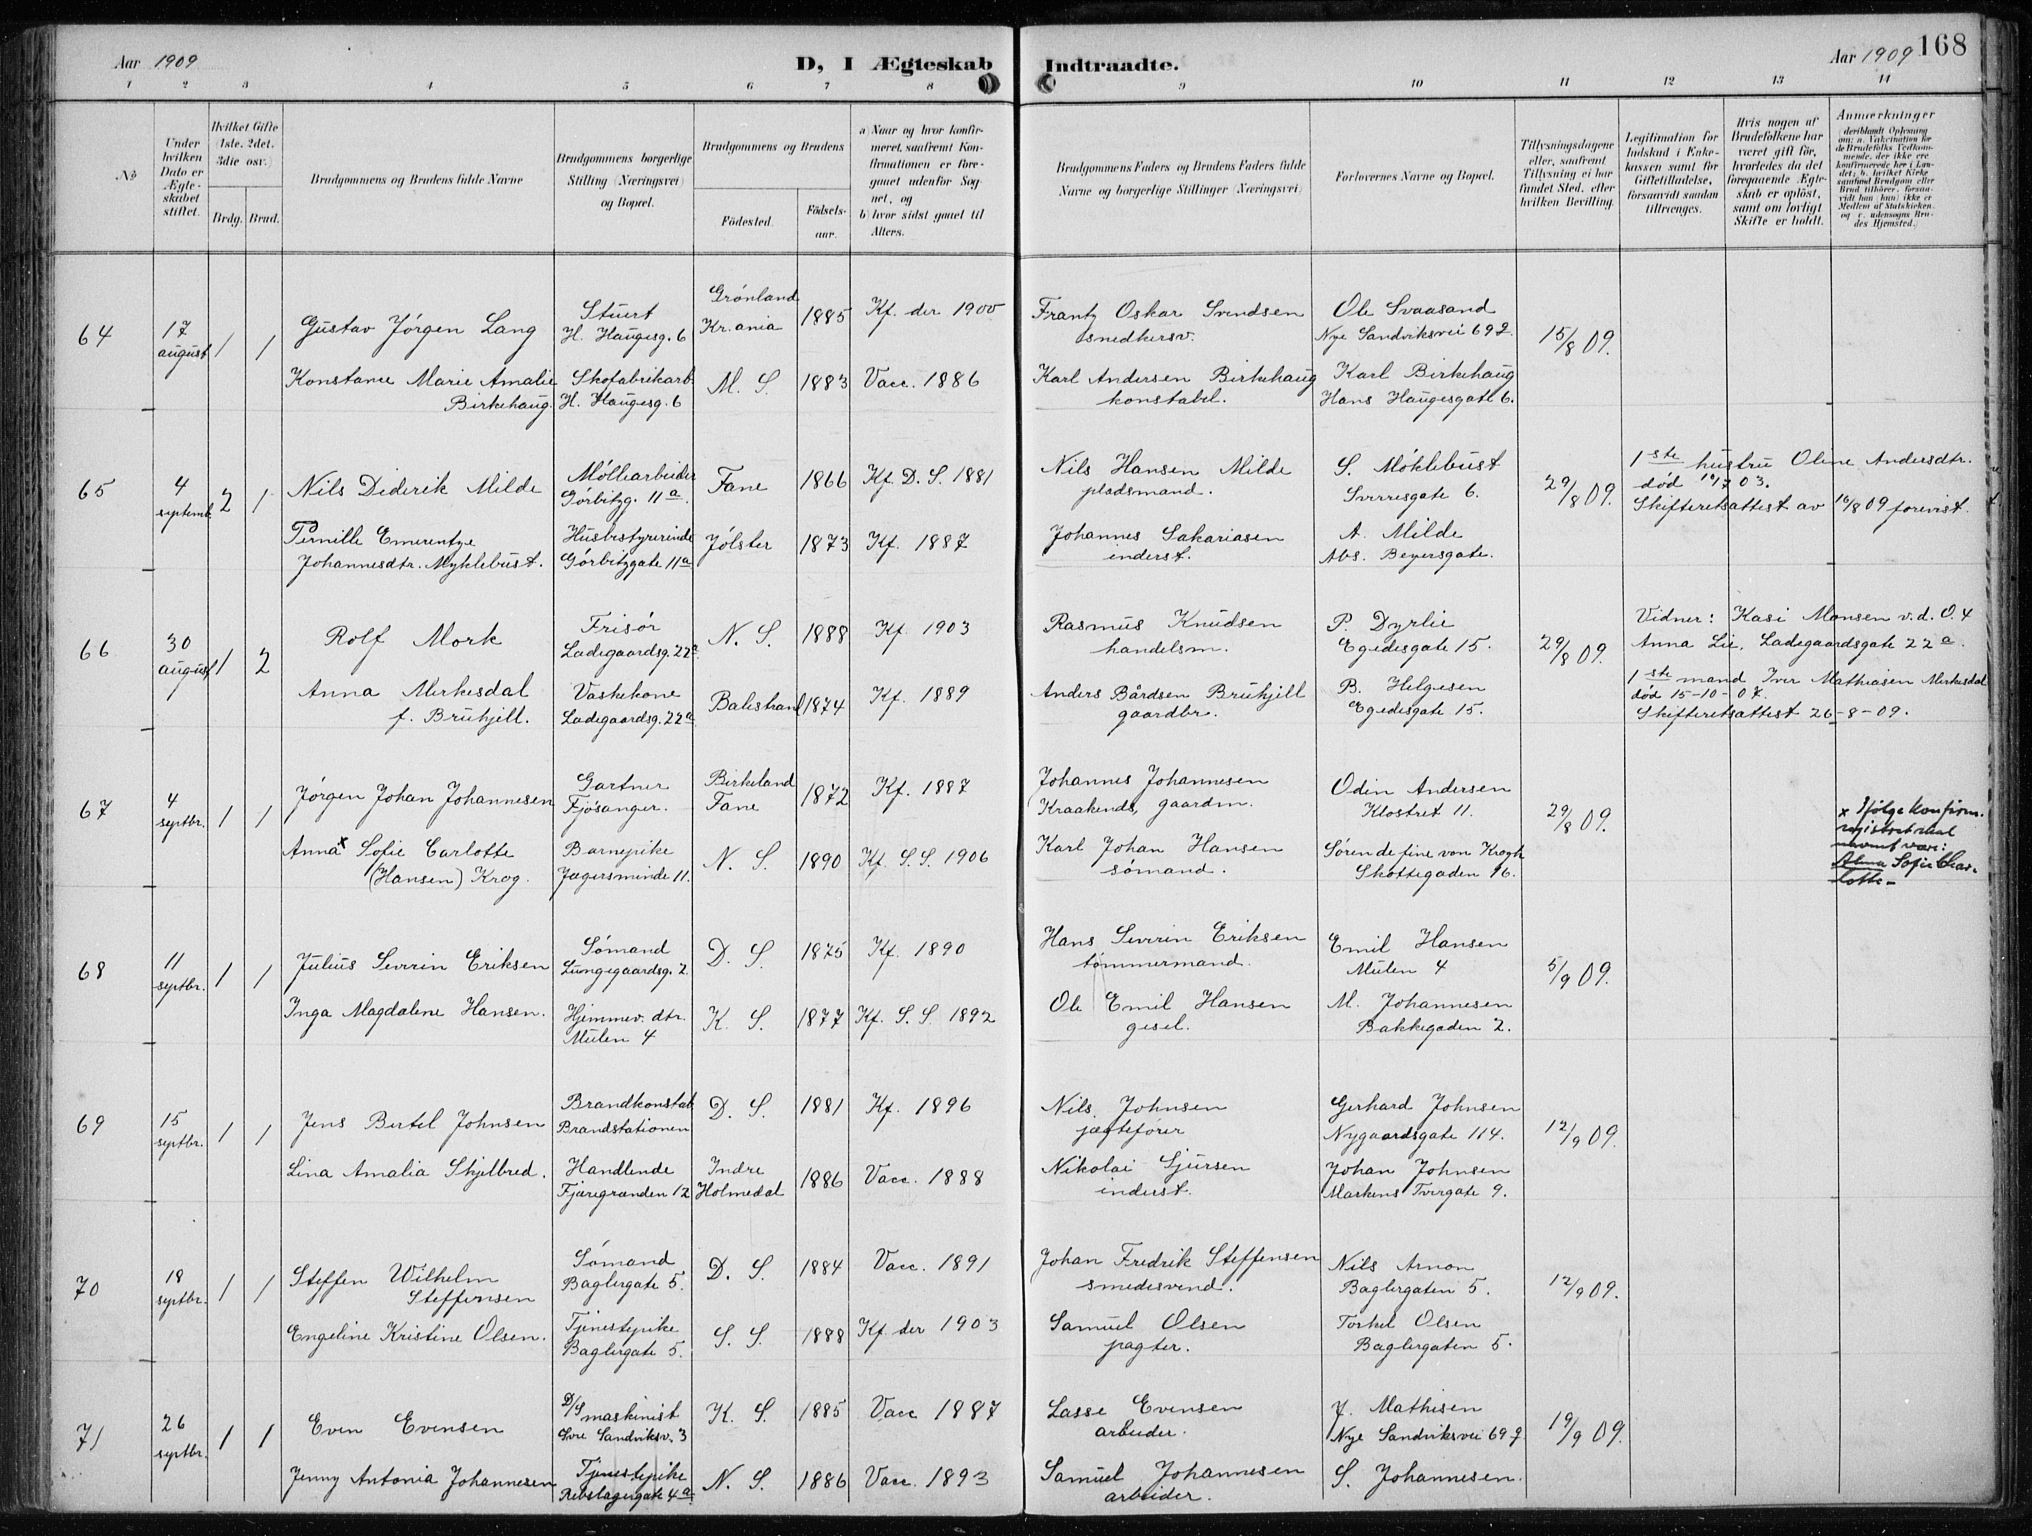 Aar 1909
D, I Ægteskab Indtraadte.
Aar 1909 168
1 2 3 4 5 6 7 8 9 10 11 12 13 14
No
Under hvilken Dato er Ægteskabet stiftet.
Hvilket Gifte (1ste. 2det. 3die osv.)
Brdg. Brud.
Brudgommens og Brudens fulde Navne
Brudgommens borgerlige Stilling (Næringsvei) og Bopæl.
Brudgommens og Brudens
Födested.
Födsels-aar.
a) Naar og hvor konfir-
meret, saafremt Kon-
firmationen er fore-
gaaet udenfor Sog-
net, og
b) hvor sidst gaaet til
Alters.
Brudgommens Faders og Brudens Faders fulde
Navne og borgerlige Stillinger (Næringsvei)
Forlovernes Navne og Bopæl.
Tillysningsdagene
eller, saafremt
Tillysning ei har
fundet Sted, efter
hvilken Bevilling.
Legitimation for
Indskud i Enke-
kassen samt for
Giftetilladelse,
forsaavidt saadan
tiltrænges.
Hvis nogen af
Brudefolkene har
været gift för,
hvorledes da det
foregaaende Ægte-
skab er oplöst,
samt om lovligt
Skifte er holdt.
Anmærkninger
deriblandt Oplysning
om: a. Vakcination for
de Brudefolks Vedkom-
mende, der ikke ere
konfirmerede her i Lan-
det; b. hvilket Kirke-
samfund Brudgom eller
Brud tilhörer, forsaa-
vidt han (hun) ikke er
Medlem af Statskirken,
og c. udensogns Bru-
des Hjemsted.)
64
17 august
1 1
Gustav Jörgen Lang
Stuert
H. Haugesg. 6
Grönland
Kr.ania
1885
Kf. der 1900
Frantz Oskar Svendsen
snedkersv.
Ole Svaasand
Nye Sandviksvei 69 2
15/8 09.
Konstance Marie Amalie
Birkehaug.
Skofabrikarb.
H. Haugesg. 6
M. S.
1883
Vacc. 1886
Karl Andersen Birkehaug
konstabel.
Karl Birkehaug
Hans Haugesgate 6.
65
4 septemb.
2 1
Nils Diderik Milde
Möllearbeider
Görbitzg. 11 a.
Fane
1866
Kf. D. S. 1881
Nils Hansen Milde
pladsmand.
S. Möklebust
Sverresgate 6.
29/8 09.
1ste hustru Oline Andersdtr.
död 03.
Skifteretsattest av 16/8 09 forevist.
Pernille Emerentze
Johannesdtr. Myklebust.
Husbestyrerinde
Görbitzgate 11a
Jölster
1873
Kf. 1887
Johannes Sakariasen
inderst.
A. Milde
Abs. Beyersgate.
66
30 august
1 2
Rolf Mork
Frisör
Ladegaardsg. 22a
N. S.
1888
Kf. 1903
Rasmus Knudsen
handelsm.
P. Dyrlie
Egedesgate 15.
29/8 09.
Vidner: Kasi Monsen v.d. O. 4
Anna Lie, Ladegaardsgate 22 a.
Anna Merkesdal
f. Brukjell.
Vaskekone
Ladegaardsg. 22a
Balestrand
1874
Kf. 1889
Anders Bårdsen Brukjell
gaardbr.
B. Helgesen
Egedesgate 15.
1ste mand Iver Mathiasen Merkesdal
död 15-10-07.
Skifteretsattest 26-8-09.
67
4 septbr.
1 1
Jörgen Johan Johannesen
Gartner
Fjösanger.
Birkeland
Fane
1872
Kf. 1887
Johannes Johannesen
Kraakenes, gaardm.
Odin Andersen
Klostret 11.
29/8 09.
Anna x Sofie Carlotte
(Hansen) Krog.
Barnepike
Jægersminde 11.
N. S.
1890
Kf. S. S. 1906
Karl Johan Hansen
sömand.
Sören de fine von Krogh
Skottegaden 16.
x Ifölge konfirm.
registret skal
navnet være:
Alma Sofie Char-
lotte.-
68
11 septbr.
1 1
Julius Severin Eriksen
Sömand
Lungegaardsg. 2
D. S.
1875
Kf. 1890
Hans Severin Eriksen
tömmermand.
Emil Hansen
Mulen 4
5/9 09.
Inga Magdalene Hansen.
Hjemmev. dtr.
Mulen 4
K. S.
1877
Kf. S. S. 1892
Ole Emil Hansen
gesel.
M. Johannesen
Bakkegaden 2.
69
15 septbr.
1 1
Jens Bertel Johnsen
Brandkonstab.
Brandstationen
D. S.
1881
Kf. 1896
Nils Johnsen
jægtefører
Gerhard Johnsen
Nygaardsgate 114.
12/9 09.
Lina Amalia Skjelbred.
Handlende
Fjæregranden 12
Indre
Holmedal
1886
Vacc. 1888
Nikolai Sjursen
inderst.
Johan Johnsen
Markens Tvergate 9.
70
18 septbr.
1 1
Steffen Wilhelm
Steffensen
Sömand
Baglergate 5.
D. S.
1884
Vacc. 1891
Johan Fredrik Steffensen
smedesvend.
Nils Arnon
Baglergaten 5.
12/9 09.
Engeline Kristine Olsen.
Tjenestepike
Baglergate 5.
S. S.
1888
Kf. der 1903
Samuel Olsen
pagter.
Torkel Olsen
Baglergaten 5.
71
26 septbr.
1 1
Even Evensen
D/S maskinist
Svre Sandviksv. 3
K. S.
1885
Vacc 1887
Lasse Evensen
arbeider.
J. Mathisen
Nye Sandviksvei 69 f
19/9 09.
Jenny Antonia Johannesen
Tjenestepike
Rebslagergate 4 a
N. S.
1886
Vacc. 1893
Samuel Johannesen
arbeider.
S. Johannesen.